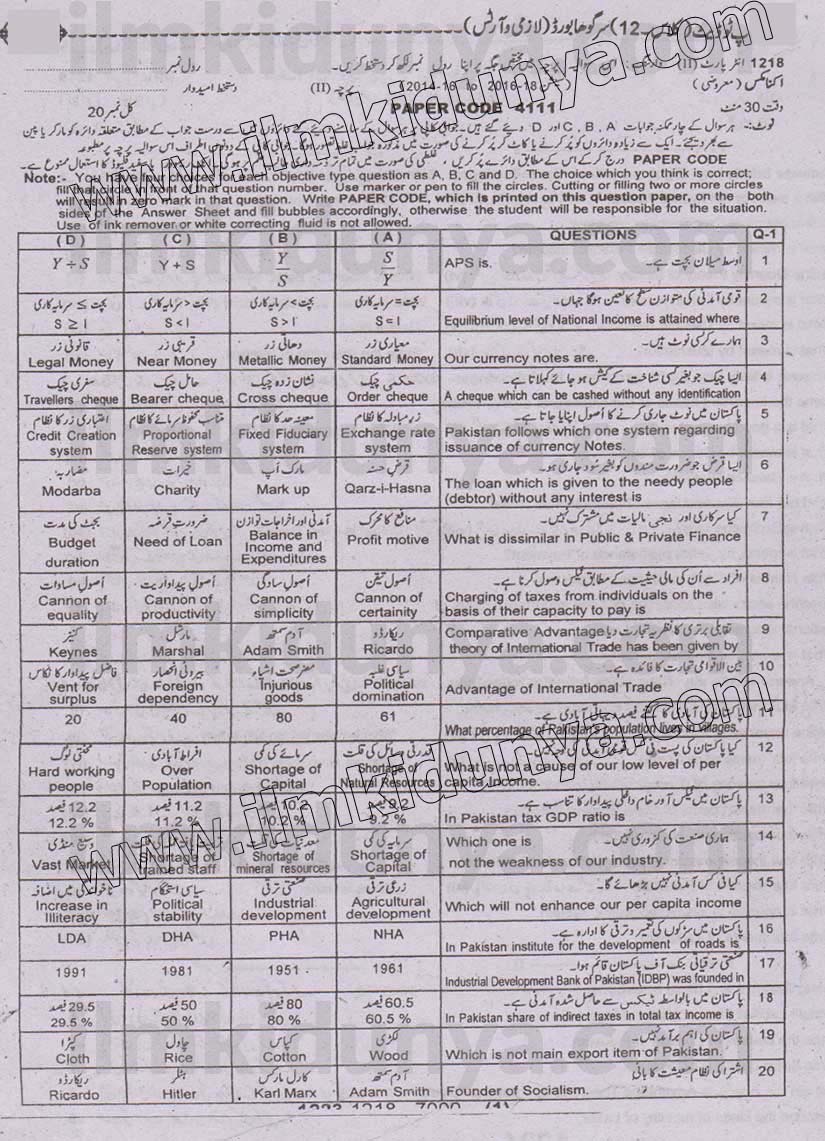 پ ٹو ڈیٹ (کلاس ـ 12) سرگودھا بورڈ (لازمی و آرٹس)
1218 انٹر پارٹ (II) پرچہ پر اپنا رول نمبر لکھ کر دستخط کریں۔ رول نمبر
اکنامکس (معروضی) (سیشن 2016-18 to 2014-16) پرچہ (II) دستخط امیدوار
وقت 30 منٹ PAPER CODE 4111 کل نمبر 20
نوٹ:- ہر سوال کے چار ممکنہ جوابات C ، B ، A اور D دیئے گئے ہیں۔ سے درست جواب کے مطابق متعلقہ دائرہ کو مارکر یا پین
سے بھر دیجئے۔ ایک سے زیادہ دائروں کو پُر کرنے یا کاٹ کر پُر کرنے کی صورت میں مذکورہ اطراف اس سوالیہ پرچہ پر مطبوعہ
PAPER CODE درج کر کے اس کے مطابق دائرے پُر کریں، غلطی کی صورت میں تمام تر سفید فلیوڈ کا استعمال ممنوع ہے۔
Note:- You have four choices for each objective type question as A, B, C and D. The choice which you think is correct;
fill that circle in front of that question number. Use marker or pen to fill the circles. Cutting or filling two or more circles
will result in zero mark in that question. Write PAPER CODE, which is printed on this question paper, on the both
sides of the Answer Sheet and fill bubbles accordingly, otherwise the student will be responsible for the situation.
Use of ink remover or white correcting fluid is not allowed.
( D ) ( C ) ( B ) ( A ) QUESTIONS Q-1
Y ÷ S Y + S Y/S S/Y APS is. اوسط میلان بچت ہے۔ 1
بچت ≥ سرمایہ کاری بچت < سرمایہ کاری بچت > سرمایہ کاری بچت = سرمایہ کاری قومی آمدنی کی متوازن سطح کا تعین ہوگا جہاں۔ 2
S ≥ I S < I S > I S = I Equilibrium level of National Income is attained where
قانونی زر قریبی زر دھاتی زر معیاری زر ہمارے کرنسی نوٹ ہیں۔ 3
Legal Money Near Money Metallic Money Standard Money Our currency notes are.
سفری چیک حامل چیک نشان زدہ چیک حکمی چیک ایسا چیک جو بغیر کسی شناخت کے کیش ہو جائے کہلاتا ہے۔ 4
Travellers cheque Bearer cheque Cross cheque Order cheque A cheque which can be cashed without any identification
اعتباری زر کا نظام متناسب محفوظ سرمائے کا نظام معینہ حد کا نظام زرِ مبادلہ کا نظام پاکستان میں نوٹ جاری کرنے کا اُصول اپنایا جاتا ہے۔ 5
Credit Creation Proportional Fixed Fiduciary Exchange rate Pakistan follows which one system regarding
system Reserve system system system issuance of currency Notes.
مضاربہ خیرات مارک اَپ قرضِ حسنہ ایسا قرض جو ضرورت مندوں کو بغیر سُود جاری ہو۔ 6
Modarba Charity Mark up Qarz-i-Hasna The loan which is given to the needy people
(debtor) without any interest is
بجٹ کی مدت ضرورتِ قرضہ آمدنی اور اخراجات توازن منافع کا محرک کیا سرکاری اور نجی مالیات میں مشترک نہیں۔ 7
Budget Need of Loan Balance in Profit motive What is dissimilar in Public & Private Finance
duration Income and
Expenditures
اُصولِ مساوات اُصولِ پیداواریت اُصولِ سادگی اُصولِ تیقن افراد سے اُن کی مالی حیثیت کے مطابق ٹیکس وصول کرنا ہے۔ 8
Cannon of Cannon of Cannon of Cannon of Charging of taxes from individuals on the
equality productivity simplicity certainity basis of their capacity to pay is
کینز مارشل آدم سمتھ ریکارڈو Comparative Advantage تقابلی برتری کا نظریہ تجارت دیا 9
Keynes Marshal Adam Smith Ricardo theory of International Trade has been given by
فاضل پیداوار کا نکاس بیرونی انحصار مضر صحت اشیاء سیاسی غلبہ بین الاقوامی تجارت کا فائدہ ہے۔ 10
Vent for Foreign Injurious Political Advantage of International Trade
surplus dependency goods domination
20 40 80 61 پاکستان کی آبادی کا کتنے فیصد دیہاتی آبادی ہے۔ 11
What percentage of Pakistan's population lives in villages.
محنتی لوگ افراطِ آبادی سرمائے کی کمی قدرتی وسائل کی قلت کیا پاکستان کی پست فی کس 12
Hard working Over Shortage of Shortage of What is not a cause of our low level of per
people Population Capital Natural Resources capita Income.
12.2 فیصد 11.2 فیصد 10.2 فیصد 9.2 فیصد پاکستان میں ٹیکس اور خام داخلی پیداوار کا تناسب ہے۔ 13
12.2 % 11.2 % 10.2 % 9.2 % In Pakistan tax GDP ratio is
وسیع منڈی سرمایہ کی کمی Which one is ہماری صنعت کی کمزوری نہیں۔ 14
Vast Market Shortage of trained staff Shortage of mineral resources Shortage of Capital not the weakness of our industry.
ناخواندگی میں اضافہ سیاسی استحکام صنعتی ترقی زرعی ترقی کیا فی کس آمدنی نہیں بڑھائے گا۔ 15
Increase in Political Industrial Agricultural Which will not enhance our per capita income
Illiteracy stability development development
LDA DHA PHA NHA پاکستان میں سڑکوں کی تعمیر و ترقی کا ادارہ ہے۔ 16
In Pakistan institute for the development of roads is
1991 1981 1951 1961 صنعتی ترقیاتی بنک آف پاکستان قائم ہوا۔ 17
Industrial Development Bank of Pakistan (IDBP) was founded in
29.5 فیصد 50 فیصد 80 فیصد 60.5 فیصد پاکستان میں بالواسطہ ٹیکس سے حاصل شدہ آمدنی ہے۔ 18
29.5 % 50 % 80 % 60.5 % In Pakistan share of indirect taxes in total tax income is
کپڑا چاول کپاس لکڑی پاکستان کی اہم برآمد نہیں۔ 19
Cloth Rice Cotton Wood Which is not main export item of Pakistan.
ریکارڈو ہٹلر کارل مارکس آدم سمتھ اشتراکی نظامِ معیشت کا بانی 20
Ricardo Hitler Karl Marx Adam Smith Founder of Socialism.
www.ilmkidunya.com
www.ilmkidunya.com